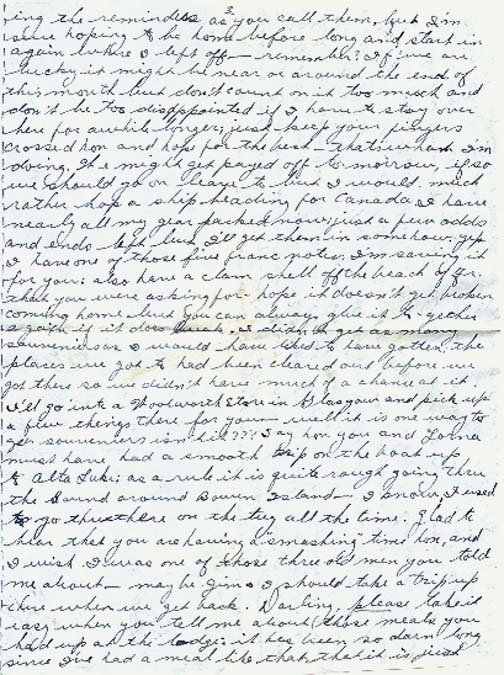 2
ing the reminders as you call them, but I'm
sure hoping to be home before long and start in
again where I left off — remember? If we are
lucky it might be near or around the end of
this month but don't count on it too much and
don't be too disappointed if I have to stay over
here for awhile longer; just keep your fingers
crossed hon and hope for the best — that's what I'm
doing. We might get payed off to-morrow, if so
we should go on leave to but I would much
rather hop a ship heading for Canada. I have
nearly all my gear packed now; just a few odds
and ends left but I'll get them in somehow; yep
I have one of those five franc notes. I'm saving it
for you: also have a clam shell off the beach of Fr.
that you were asking for — hope it doesn't get broken
coming home but you can always glue it to-gether
again if it does break. I didn't get as many
souveniers as I would have liked to have gotten, the
places we got to had been cleared out before we
got there so we didn't have much of a chance at it
I'll go into a Woolworth Store in Glasgow and pick up
a few things there for you — well it is one way to
get souveniers isn't it??? Say hon you and Lorna
must have had a smooth trip on the boat up
to Alta Lake: as a rule it is quite rough going thru
the Sound around Bowen Island — I know, I used
to go thru there on the tug all the time. Glad to
hear that you are having a "smashing" time hon, and
I wish I was one of those three old men you told
me about — may be Jim & I should take a trip up
there when we get back. Darling, please take it
easy when you tell me about those meals you
had up at the lodge: it has been so darn long
since I've had a meal like that, that it is just